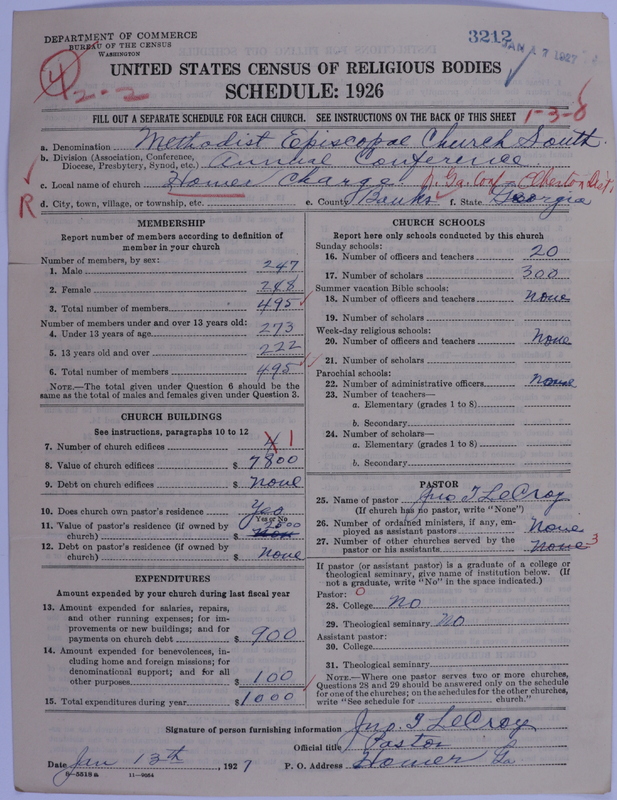 DEPARTMENT OF COMMERCE
BUREAU OF THE CENSUS
WASHINGTON
3212
JAN 17 1927
4
2-2
UNITED STATES CENSUS OF RELIGIOUS BODIES
SCHEDULE: 1926
FILL OUT A SEPARATE SCHEDULE FOR EACH CHURCH. SEE INSTRUCTIONS ON THE BACK OF THIS SHEET
1-3-0
a. Denomination Methodist Episcopal Church South.
b. Division (Association, Conference, Diocese, Presbytery, Synod, etc.) Annual Conference
c. Local name of church Homer Charge. N. Ga. Conf - Elberton Dist.
R
d. City, town, village, or township, etc. e. County Banks f. State Georgia
MEMBERSHIP
Report number of members according to definition of
member in your church
Number of members, by sex:
1. Male 247
2. Female 248
3. Total number of members 495
Number of members under and over 13 years old:
4. Under 13 years of age 273
5. 13 years old and over 222
6. Total number of members 495
NOTE.—The total given under Question 6 should be the
same as the total of males and females given under Question 3.
CHURCH BUILDINGS
See instructions, paragraphs 10 to 12
7. Number of church edifices 4 1
8. Value of church edifices $ 7800
9. Debt on church edifices $ none
10. Does church own pastor's residence Yes
Yes or No
11. Value of pastor's residence (if owned by
church) $
12. Debt on pastor's residence (if owned by
church) $ none
EXPENDITURES
Amount expended by your church during last fiscal year
13. Amount expended for salaries, repairs,
and other running expenses; for im-
provements or new buildings; and for
payments on church debt $ 900
14. Amount expended for benevolences, in-
cluding home and foreign missions; for
denominational support; and for all
other purposes $ 100
15. Total expenditures during year $ 1000
CHURCH SCHOOLS
Report here only schools conducted by this church
Sunday schools:
16. Number of officers and teachers 20
17. Number of scholars 300
Summer vacation Bible schools:
18. Number of officers and teachers none
19. Number of scholars
Week-day religious schools:
20. Number of officers and teachers none
21. Number of scholars
Parochial schools:
22. Number of administrative officers none
23. Number of teachers—
a. Elementary (grades 1 to 8)
b. Secondary
24. Number of scholars—
a. Elementary (grades 1 to 8)
b. Secondary
PASTOR
25. Name of pastor Jno T LeCroy
(If church has no pastor, write "None")
26. Number of ordained ministers, if any, em-
ployed as assistant pastors None
27. Number of other churches served by the
pastor or his assistants None 3
If pastor (or assistant pastor) is a graduate of a college or
theological seminary, give name of institution below. (If
not a graduate, write "No" in the space indicated.)
Pastor: 0
28. College No
29. Theological seminary No
Assistant pastor:
30. College
31. Theological seminary
NOTE.—Where one pastor serves two or more churches,
Questions 28 and 29 should be answered only on the schedule
for one of the churches; on the schedules for the other churches,
write "See schedule for church."
Signature of person furnishing information Jno. T LeCroy
Official title Pastor
Date Jan 13th, 1927 P. O. Address Homer Ga
8-5518a 11-9054